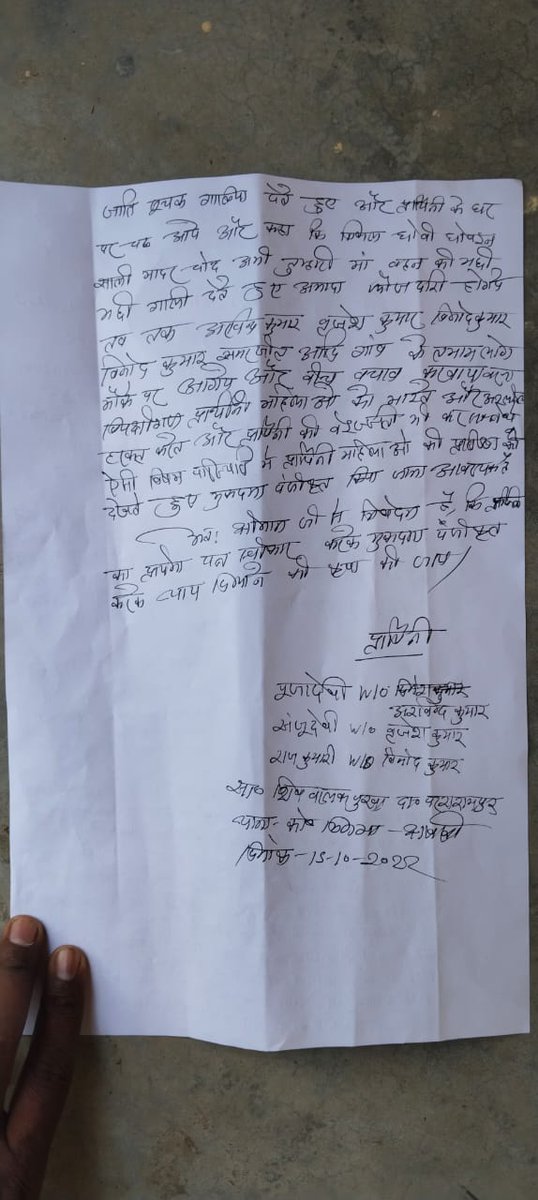 जाति सूचक गालियां देते हुए और प्रार्थिनी के घर
पर चढ आये और कहा कि धोबी धोबइन
साली मादर-चोद अभी तुम्हारी मां बहन की भद्दी
भद्दी गाली देते हुए अमादा फौजदारी होगये
तब तक अरविन्द कुमार बृजेश कुमार विनोद कुमार
विनोद कुमार आदि गांव के तमाम लोग
मौके पर आगये और बीच बचाव
विपक्षीगण प्रार्थिनी महिलाओ को मारते और
हरकत करते और प्रार्थिनी की बेइज्जती भी
ऐसी विषम परिस्थिति में प्रार्थिनी महिलाओ की को
देखते हुए मुकदमा पंजीकृत किया जाना आवश्यक है
अतः श्रीमान जी से निवेदन है, कि
का प्रार्थना पत्र स्वीकार करके मुकदमा पंजीकृत
करके न्याय दिलाने की कृपा की जाय
प्रार्थिनी
पूजादेवी W/O
अरविन्द कुमार
संजूदेवी W/O बृजेश कुमार
राज कुमारी W/O विनोद कुमार
सा० शिव बालक पुरवा दा० परशरामपुर
थाना- को०
दिनांक-15-10-2022